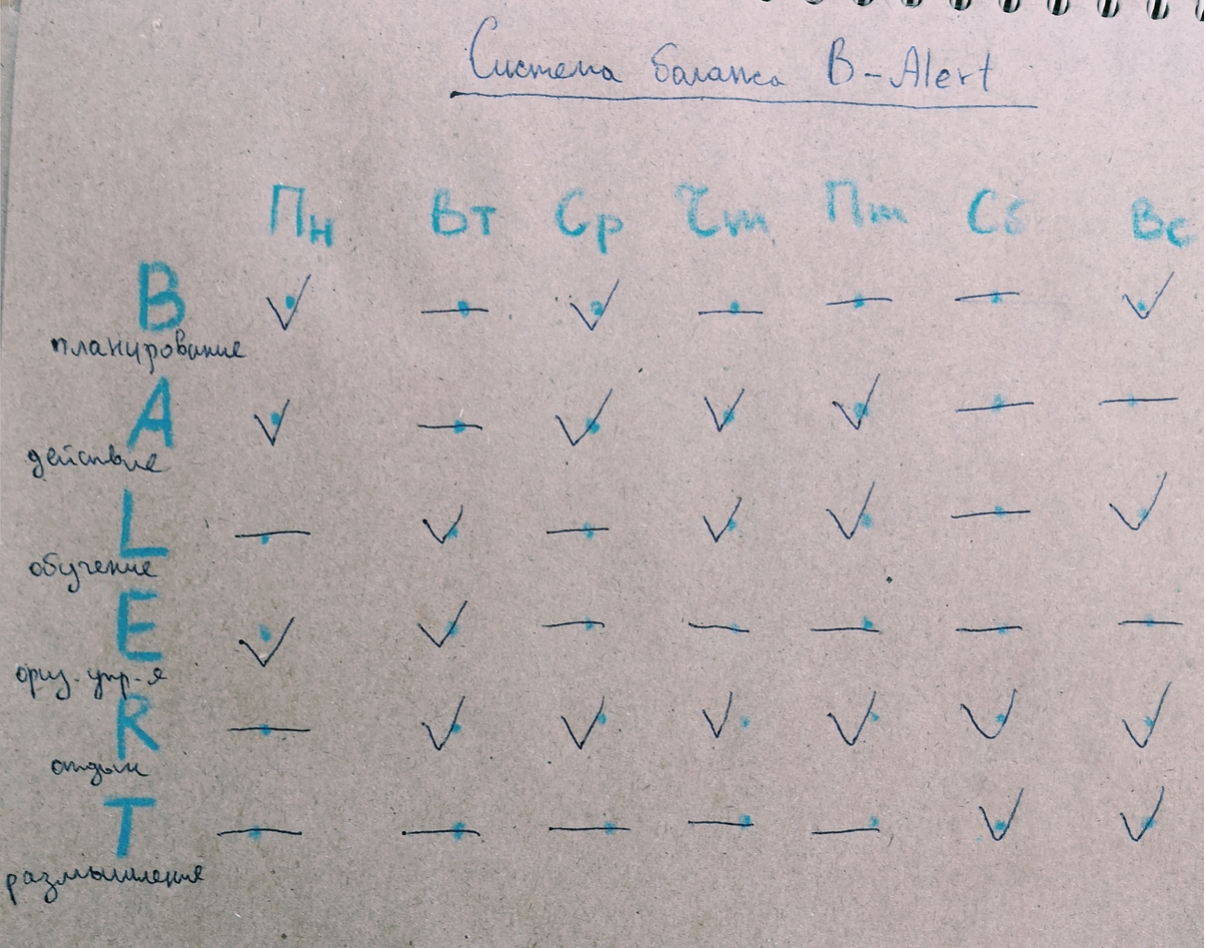 Система баланса B-Alert
Пн Вт Ср Чт Пт Сб Вс
B ✓ — ✓ — — — ✓
планирование
A ✓ — ✓ ✓ ✓ — —
действие
L — ✓ — ✓ ✓ — ✓
обучение
E ✓ ✓ — — — — —
физ. упр-я
R — ✓ ✓ ✓ ✓ ✓ ✓
отдых
T — — — — — ✓ ✓
размышление